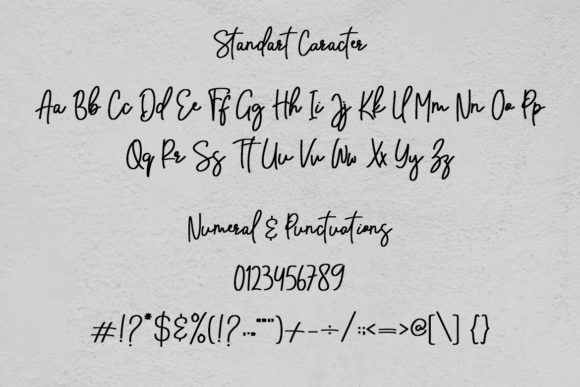 Standart Caracter
Aa Bb Cc Dd Ee Ff Gg Hh Ii Jj Kk Ll Mm Nn Oo Pp
Qq Rr Ss Tt Uu Vv Ww Xx Yy Zz
Numeral & Punctuations
0123456789
#!?*$&%(!?.,-"'"")+-÷/:;<=>@[\] {}